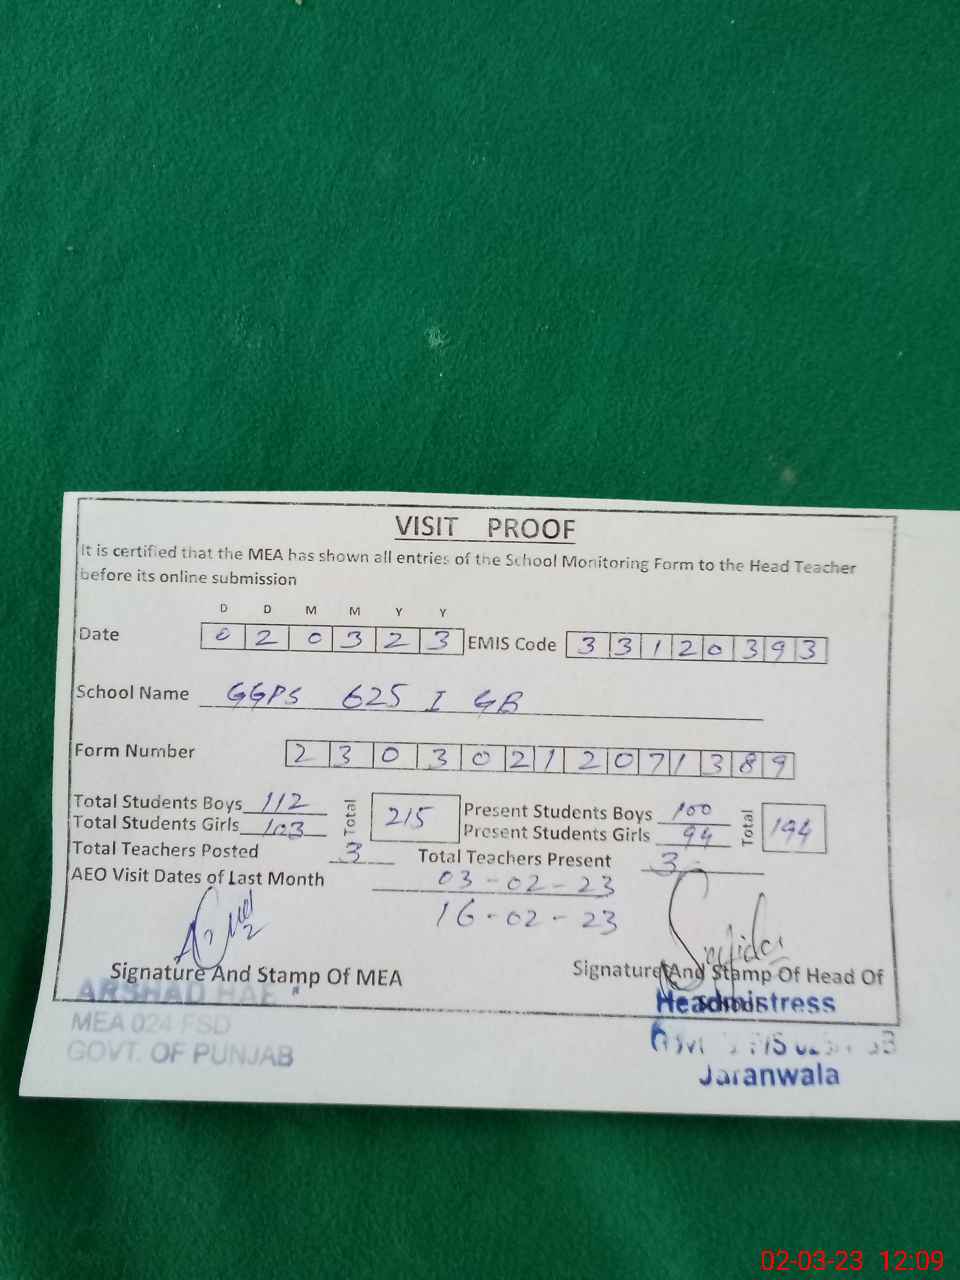 VISIT PROOF
It is certified that the MEA has shown all entries of the School Monitoring Form to the Head Teacher
before its online submission
D D M M Y Y
Date 0 2 0 3 2 3 EMIS Code 3 3 1 2 0 3 9 3
School Name GGPS 625 I GB
Form Number 2 3 0 3 0 2 1 2 0 7 1 3 8 9
Total Students Boys 112 Total 215 Present Students Boys 100 Total 194
Total Students Girls 103 Present Students Girls 94
Total Teachers Posted 3 Total Teachers Present 3
AEO Visit Dates of Last Month 03-02-23
16-02-23
Signature And Stamp Of MEA Signature And Stamp Of Head Of
School
ARSHAD Headmistress
MEA 024 FSD
GOVT. OF PUNJAB Jaranwala
02-03-23 12:09